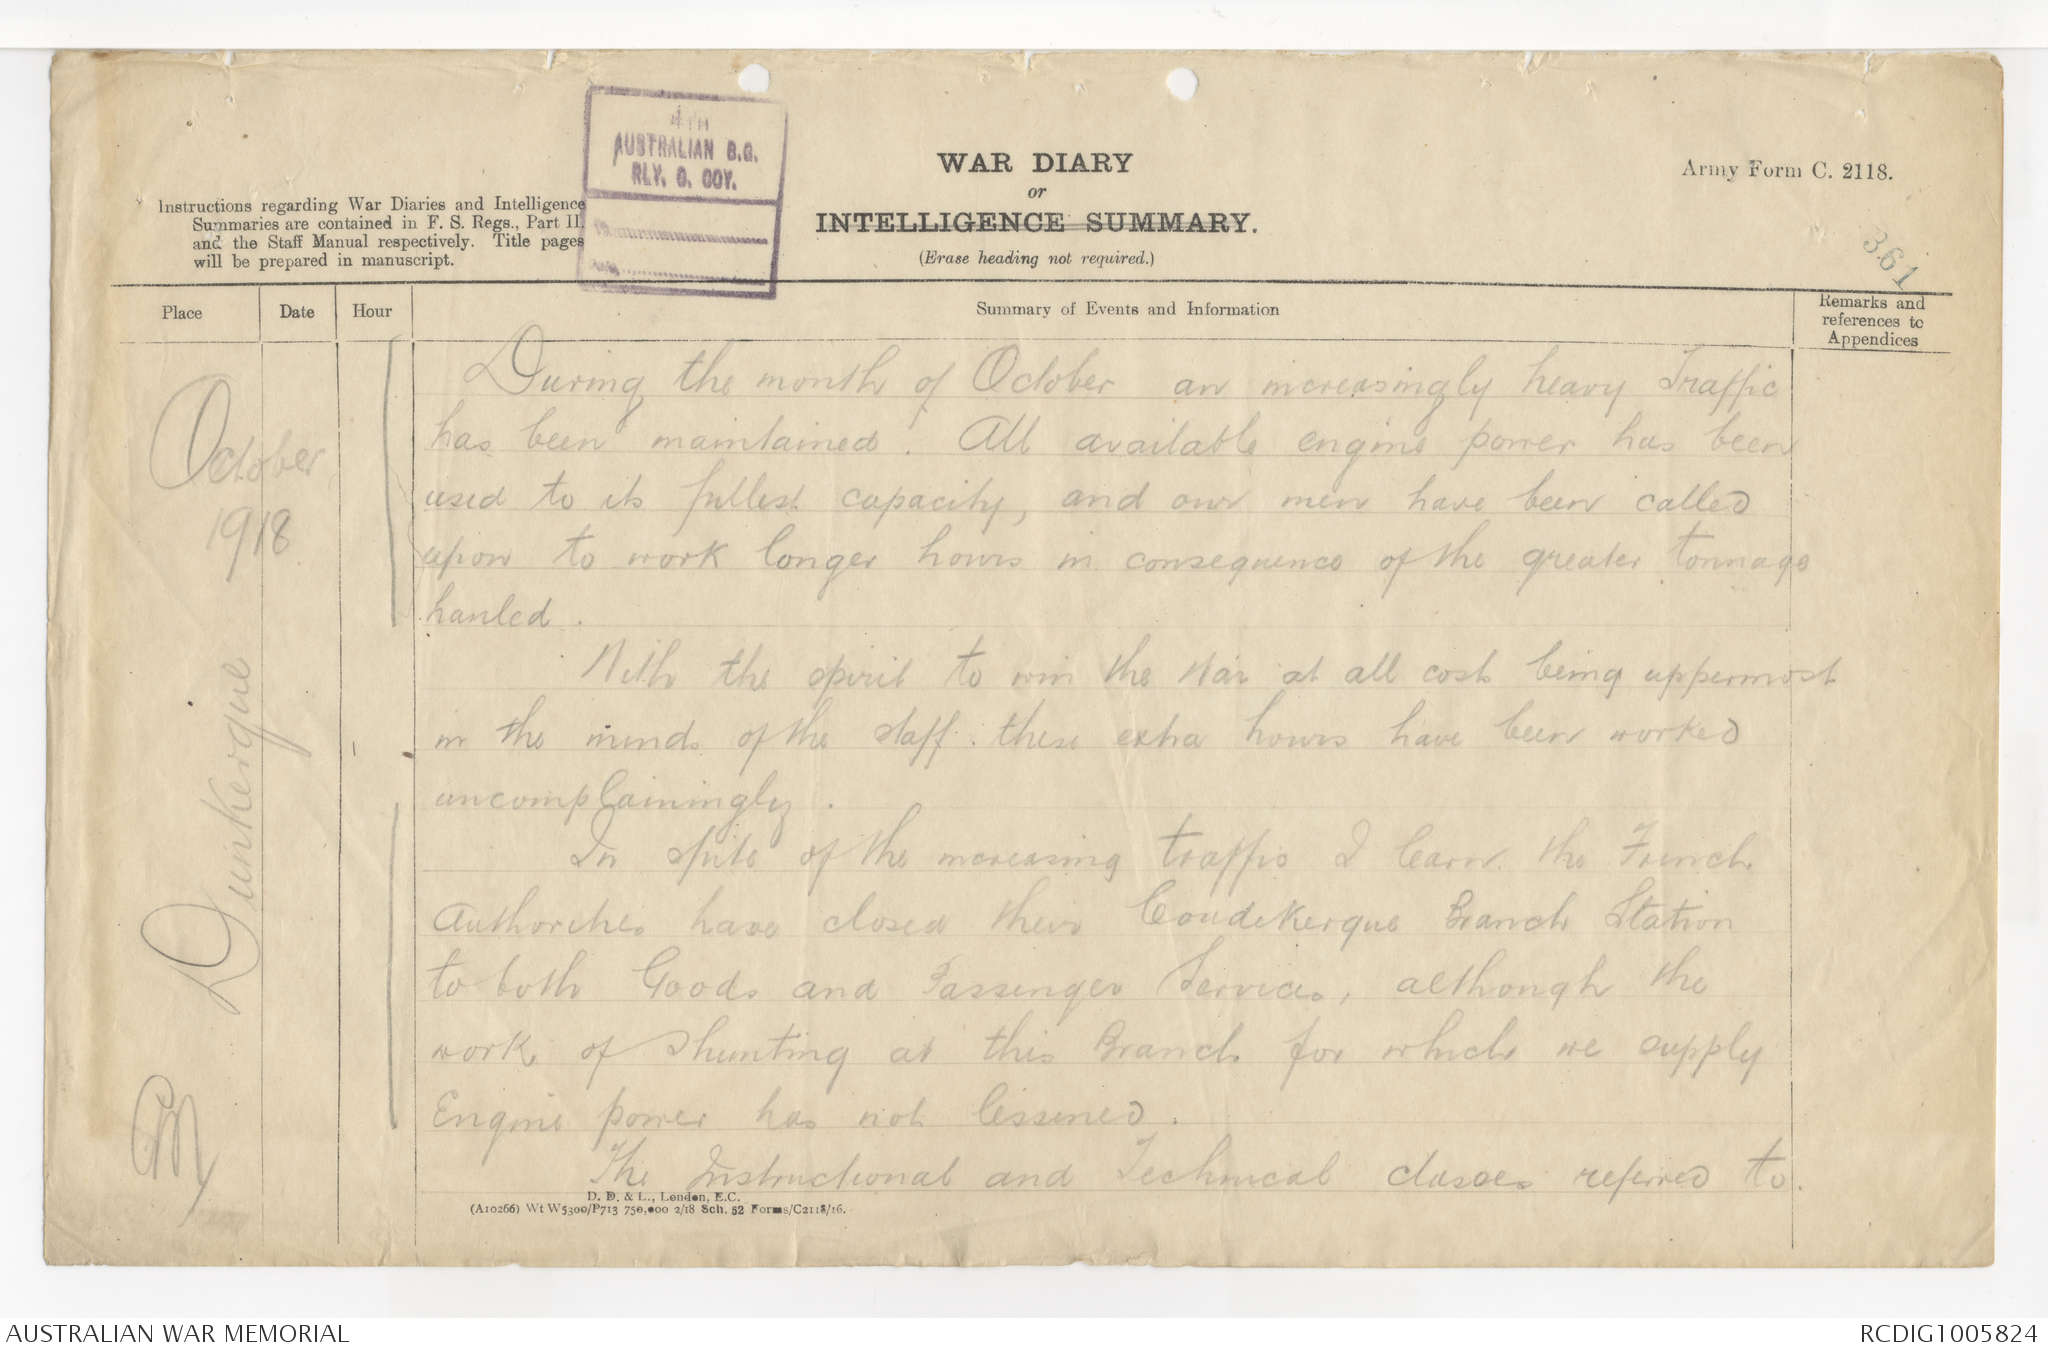 4TH
AUSTRALIAN B.G.
RLY. O. COY.
WAR DIARY
or
INTELLIGENCE SUMMARY.
(Erase heading not required.)
Army Form C. 2118.
Instructions regarding War Diaries and Intelligence
Summaries are contained in F. S. Regs., Part II.
and the Staff Manual respectively. Title pages
will be prepared in manuscript.
361
Place
Date
Hour
Summary of Events and Information
Remarks and
references to
Appendices
October
1918
Dunkerque
During the month of October an increasingly heavy Traffic
has been maintained. All available engine power has been
used to its fullest capacity, and our men have been called
upon to work longer hours in consequence of the greater tonnage
hauled.
With the spirit to win the War at all cost being uppermost
in the minds of the staff. these extra hours have been worked
uncomplainingly.
In spite of the increasing traffic I learn the French
Authorities have closed their Coudekerque Branch Station
to both Goods and Passenger Services, although the
work of shunting at this Branch for which we supply
Engine power has not lessened.
The Instructional and Technical classes referred to.
D. D. & L., London, E.C.
(A10266) Wt W5300/P713 750,000 2/18 Sch. 52 Forms/C2118/16.
AUSTRALIAN WAR MEMORIAL
RCDIG1005824